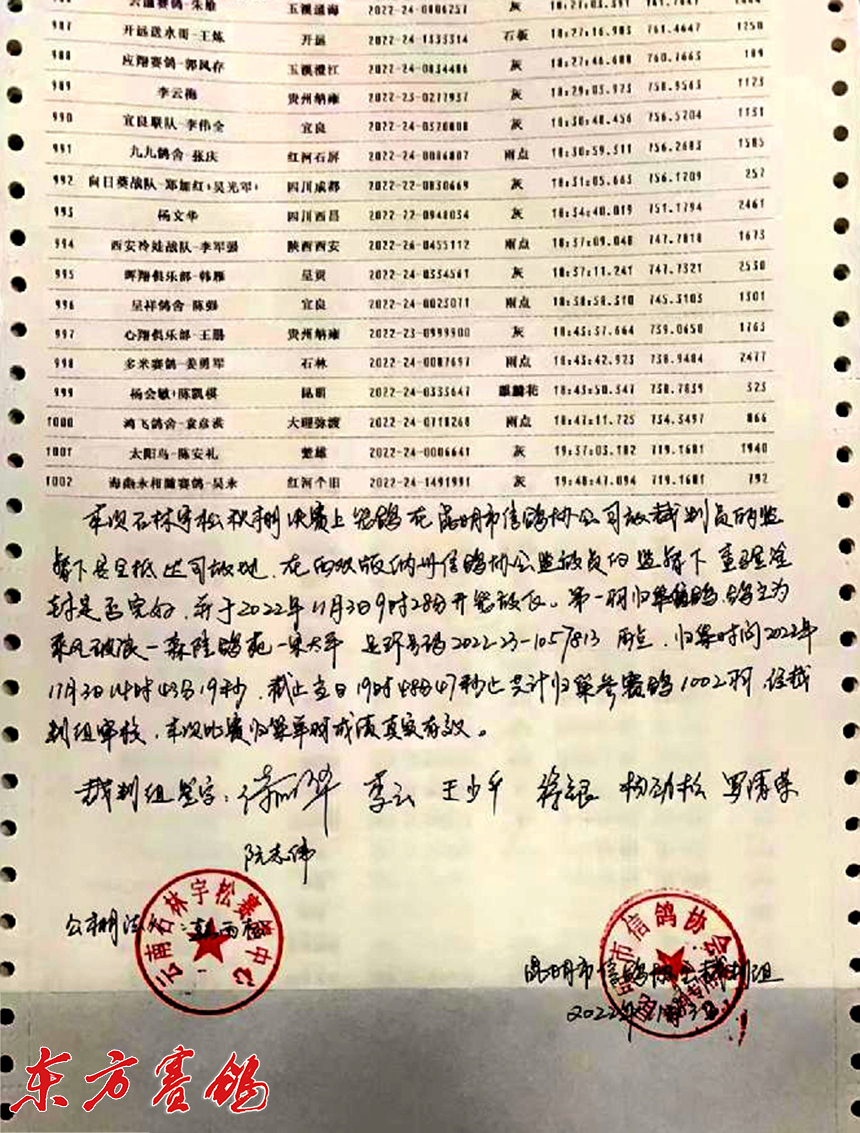 云腾赛鸽-朱雄 玉溪通海 2022-24-0806257 灰 18:27:03.391
987 开远送水哥-王炼 开远 2022-24-1333314 石板 18:27:16.983 761.4647 1250
988 应翔赛鸽-郭风存 玉溪澄江 2022-24-0834486 灰 18:27:46.688 760.7663 189
989 李云衡 贵州纳雍 2022-23-0277937 灰 18:29:03.923 758.9563 1123
990 宜良联队-李伟全 宜良 2022-24-0320808 灰 18:30:48.456 756.5204 1131
991 九九鸽舍-张庆 红河石屏 2022-24-0086807 雨点 18:30:59.311 756.2683 1585
992 向日葵战队-郑加红+吴光军+ 四川成都 2022-22-0830669 灰 18:31:05.663 756.1209 257
993 杨文华 四川西昌 2022-22-0948034 灰 18:34:40.019 751.1794 2461
994 西安冷娃战队-李军强 陕西西安 2022-26-0455112 雨点 18:37:09.048 747.7818 1673
995 晖翔俱乐部-韩雁 呈贡 2022-24-0334561 灰 18:37:11.241 747.7321 2530
996 呈祥鸽舍-陈强 宜良 2022-24-0023071 雨点 18:38:58.310 745.3103 1301
997 心翔俱乐部-王鹏 贵州纳雍 2022-23-0999900 灰 18:43:37.664 739.0650 1763
998 多米赛鸽-姜勇军 石林 2022-24-0087697 雨点 18:43:42.923 738.9484 2477
999 杨会敏+陈凯模 昆明 2022-24-0333647 麒麟花 18:43:50.347 738.7839 323
1000 鸿飞鸽舍-袁彦洪 大理弥渡 2022-24-0718268 雨点 18:47:11.725 734.3497 866
1001 太阳鸟-陈安礼 楚雄 2022-24-0006641 灰 19:37:03.182 719.1681 1940
1002 海燕永相随赛鸽-吴永 红河个旧 2022-24-1491991 灰 19:48:47.094 719.1681 792
本次石林宇松秋棚决赛上笼鸽在昆明市信鸽协会司放裁判员的监
督下安全抵达司放地，在西双版纳州信鸽协会监放员的监督下查验铅
封是否完好，并于2022年11月3日9时28分开笼放飞。第一羽归巢信鸽，鸽主为
乘风破浪-森隆鸽苑-宋大平 足环号码2022-23-1057813 雨点，归巢时间2022年
11月3日14时43分19秒，截止当日19时48分47秒止共计归巢参赛鸽1002羽，经裁
判组审核，本次比赛归巢单羽成绩真实有效。
裁判组签字： 李云 王少华 杨劲松
阮志伟
公棚法人：
云南石林宇松赛鸽中心
昆明市信鸽协会裁判组
2022年11月3日
市信鸽协会
东方赛鸽